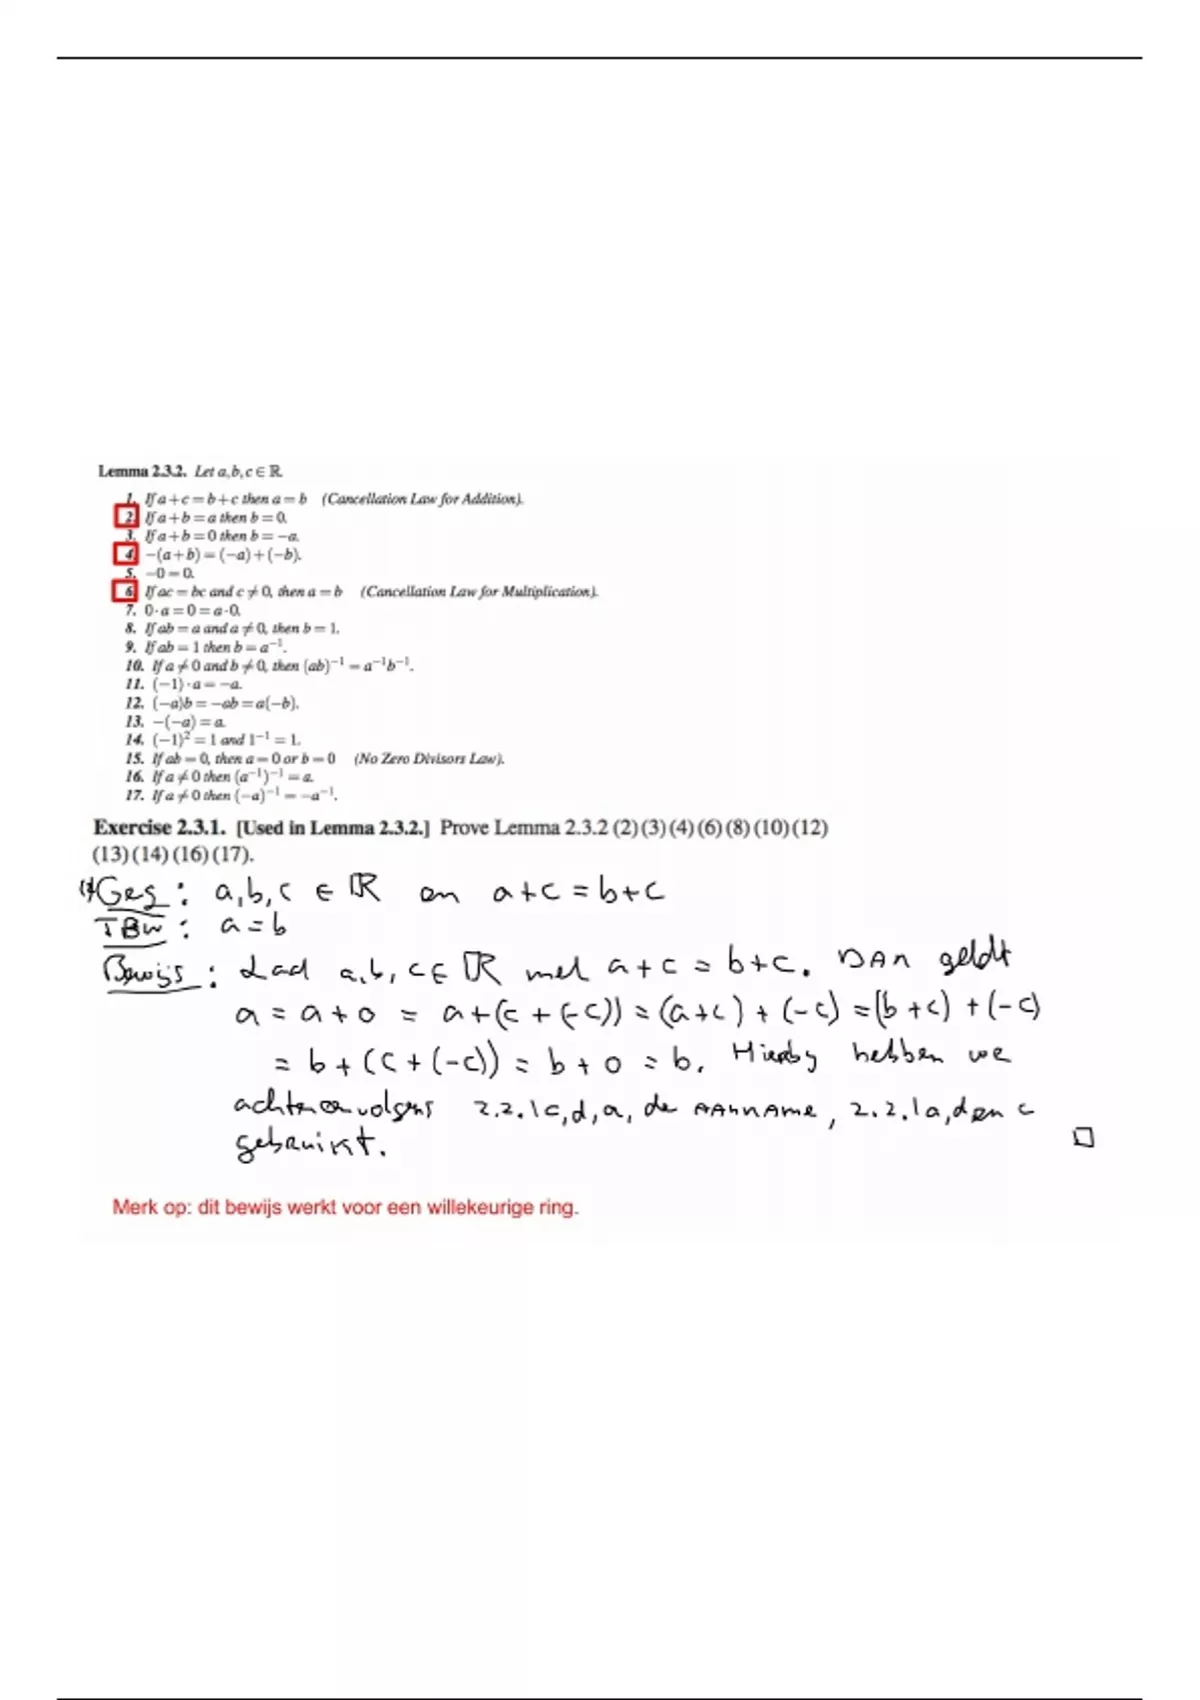 Lemma 2.3.2. Let a, b, c ∈ ℝ.
1. If a + c = b + c then a = b (Cancellation Law for Addition).
2. If a + b = a then b = 0.
3. If a + b = 0 then b = −a.
4. −(a + b) = (−a) + (−b).
5. −0 = 0.
6. If ac = bc and c ≠ 0, then a = b (Cancellation Law for Multiplication).
7. 0 · a = 0 = a · 0.
8. If ab = a and a ≠ 0, then b = 1.
9. If ab = 1 then b = a⁻¹.
10. If a ≠ 0 and b ≠ 0, then (ab)⁻¹ = a⁻¹b⁻¹.
11. (−1) · a = −a.
12. (−a)b = −ab = a(−b).
13. −(−a) = a.
14. (−1)² = 1 and 1⁻¹ = 1.
15. If ab = 0, then a = 0 or b = 0 (No Zero Divisors Law).
16. If a ≠ 0 then (a⁻¹)⁻¹ = a.
17. If a ≠ 0 then (−a)⁻¹ = −a⁻¹.
Exercise 2.3.1. [Used in Lemma 2.3.2.] Prove Lemma 2.3.2 (2) (3) (4) (6) (8) (10) (12)
(13) (14) (16) (17).
Geg: a, b, c ∈ ℝ en a+c = b+c
TBW: a = b
Bewijs: Laat a, b, c ∈ ℝ met a+c = b+c. DAN geldt
a = a+0 = a+(c+(−c)) = (a+c)+(−c) = (b+c)+(−c)
= b+(c+(−c)) = b+0 = b. Hierby hebben we
achtereenvolgens 2.2.1c,d,a, de AANNAME, 2.2.1a,d en c
gebruikt. □
Merk op: dit bewijs werkt voor een willekeurige ring.